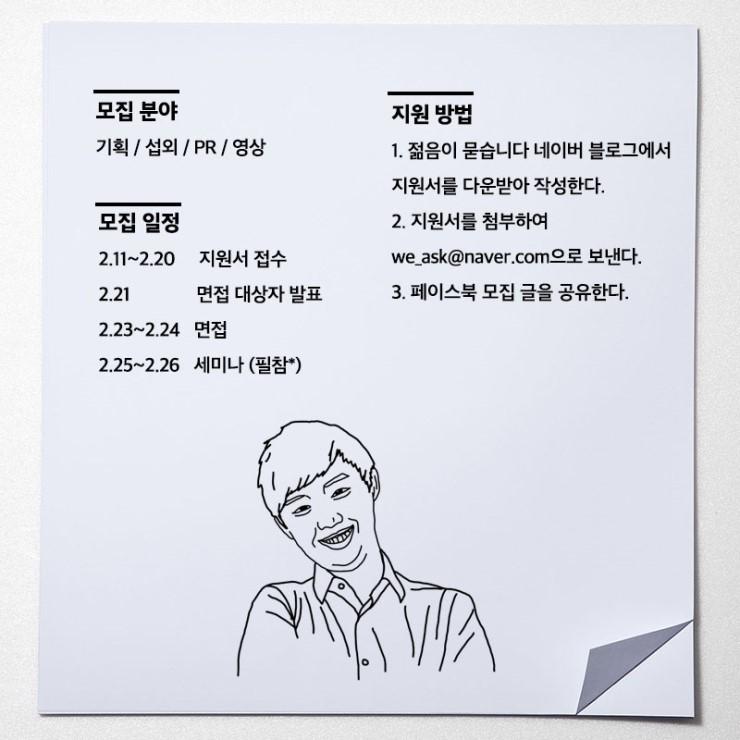 모집 분야
기획 / 섭외 / PR / 영상
모집 일정
2.11~2.20 지원서 접수
2.21 면접 대상자 발표
2.23~2.24 면접
2.25~2.26 세미나 (필참*)
지원 방법
1. 젊음이 묻습니다 네이버 블로그에서
지원서를 다운받아 작성한다.
2. 지원서를 첨부하여
we_ask@naver.com으로 보낸다.
3. 페이스북 모집 글을 공유한다.